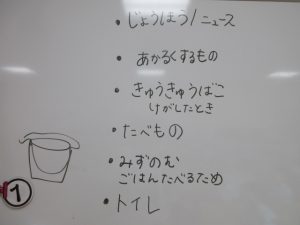 ・じょうほう/ニュース
・あかるくするもの
・きゅうきゅうばこ
けがしたとき
・たべもの
・みずのむ
ごはんたべるため
・トイレ
①